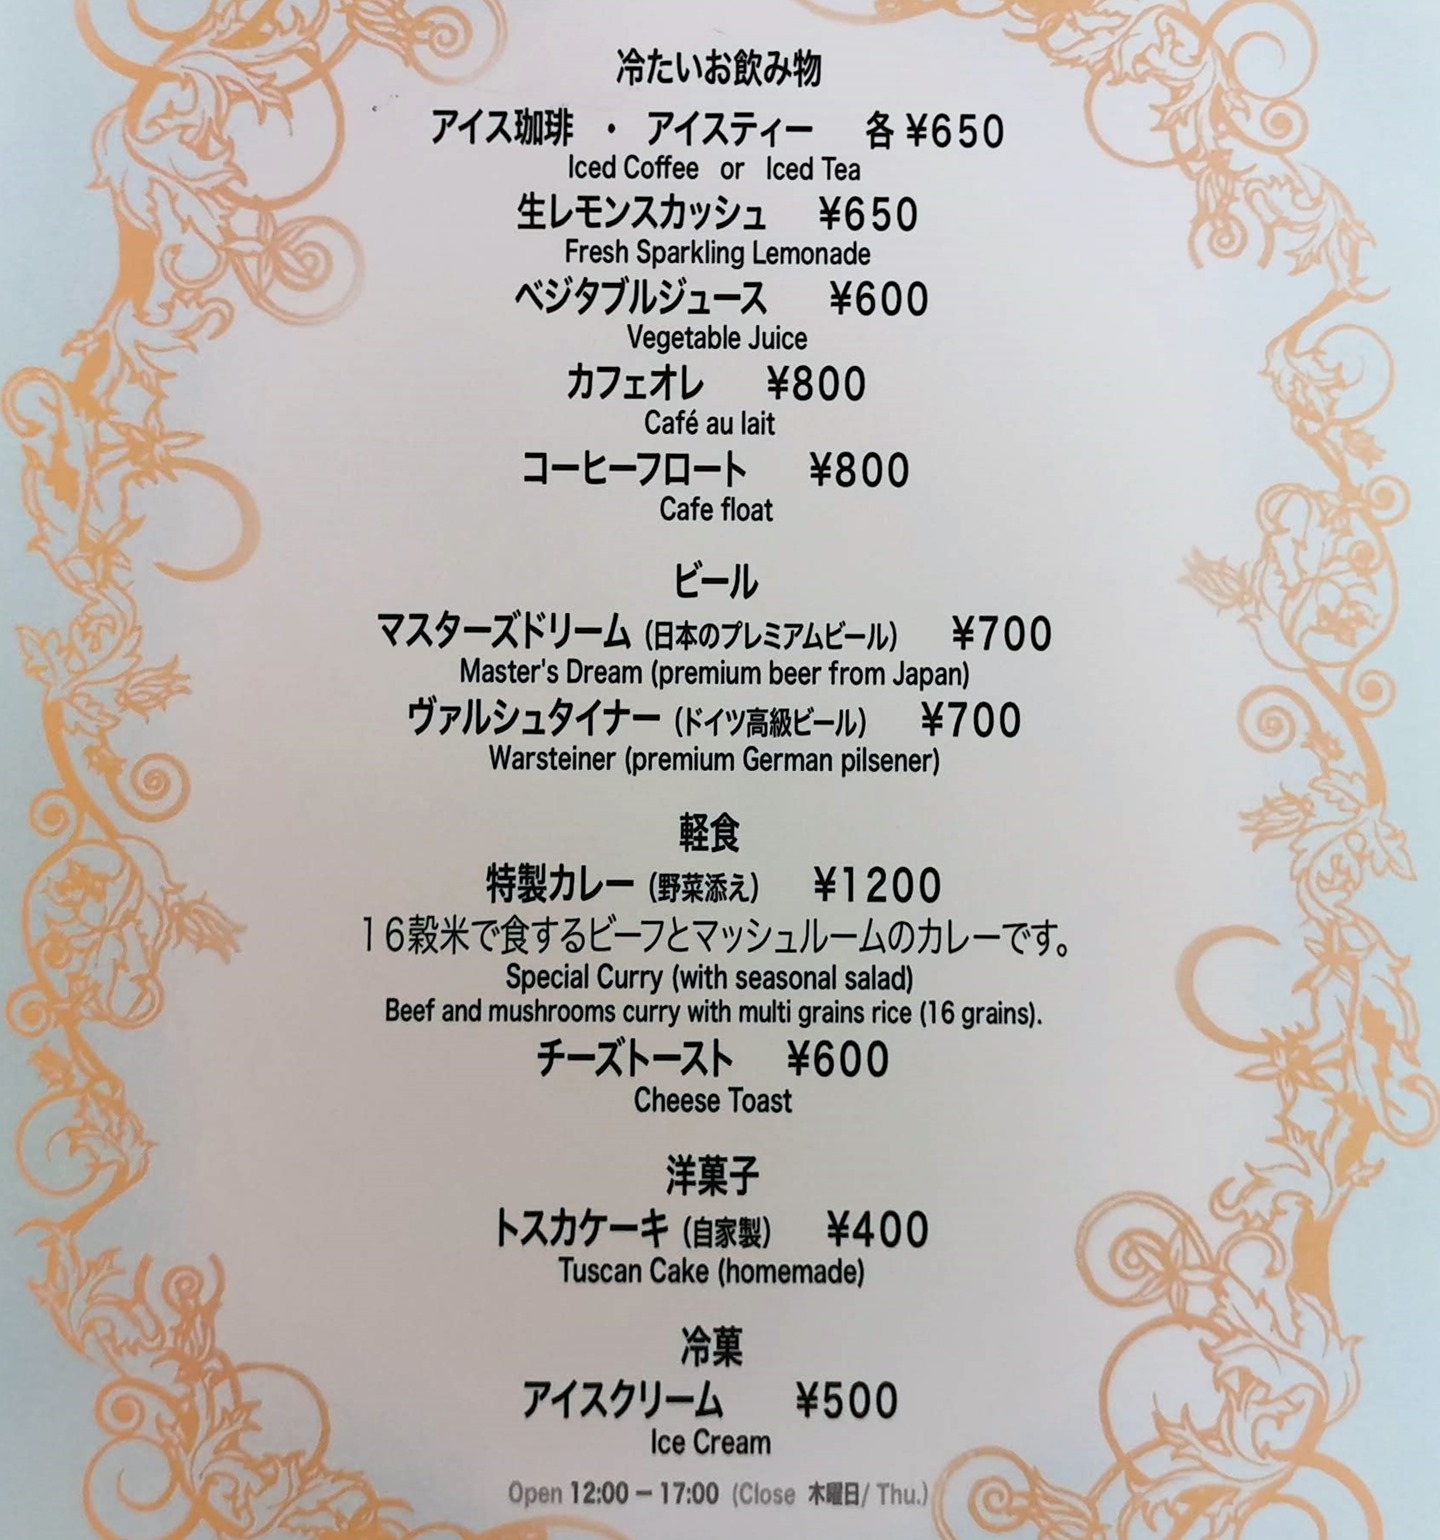 冷たいお飲み物
アイス珈琲 ・ アイスティー 各 ¥650
Iced Coffee or Iced Tea
生レモンスカッシュ ¥650
Fresh Sparkling Lemonade
ベジタブルジュース ¥600
Vegetable Juice
カフェオレ ¥800
Café au lait
コーヒーフロート ¥800
Cafe float
ビール
マスターズドリーム (日本のプレミアムビール) ¥700
Master's Dream (premium beer from Japan)
ヴァルシュタイナー (ドイツ高級ビール) ¥700
Warsteiner (premium German pilsener)
軽食
特製カレー (野菜添え) ¥1200
16穀米で食するビーフとマッシュルームのカレーです。
Special Curry (with seasonal salad)
Beef and mushrooms curry with multi grains rice (16 grains).
チーズトースト ¥600
Cheese Toast
洋菓子
トスカケーキ (自家製) ¥400
Tuscan Cake (homemade)
冷菓
アイスクリーム ¥500
Ice Cream
Open 12:00 − 17:00 (Close 木曜日/ Thu.)